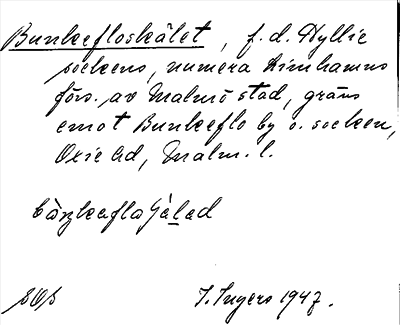 Bunkefloskälet, f.d. Hyllie
sockens, numera Limhamns
förs. av Malmö stad, gräns
emot Bunkeflo by o. socken,
Oxie hd, Malm. l.
I. Ingers 1947.